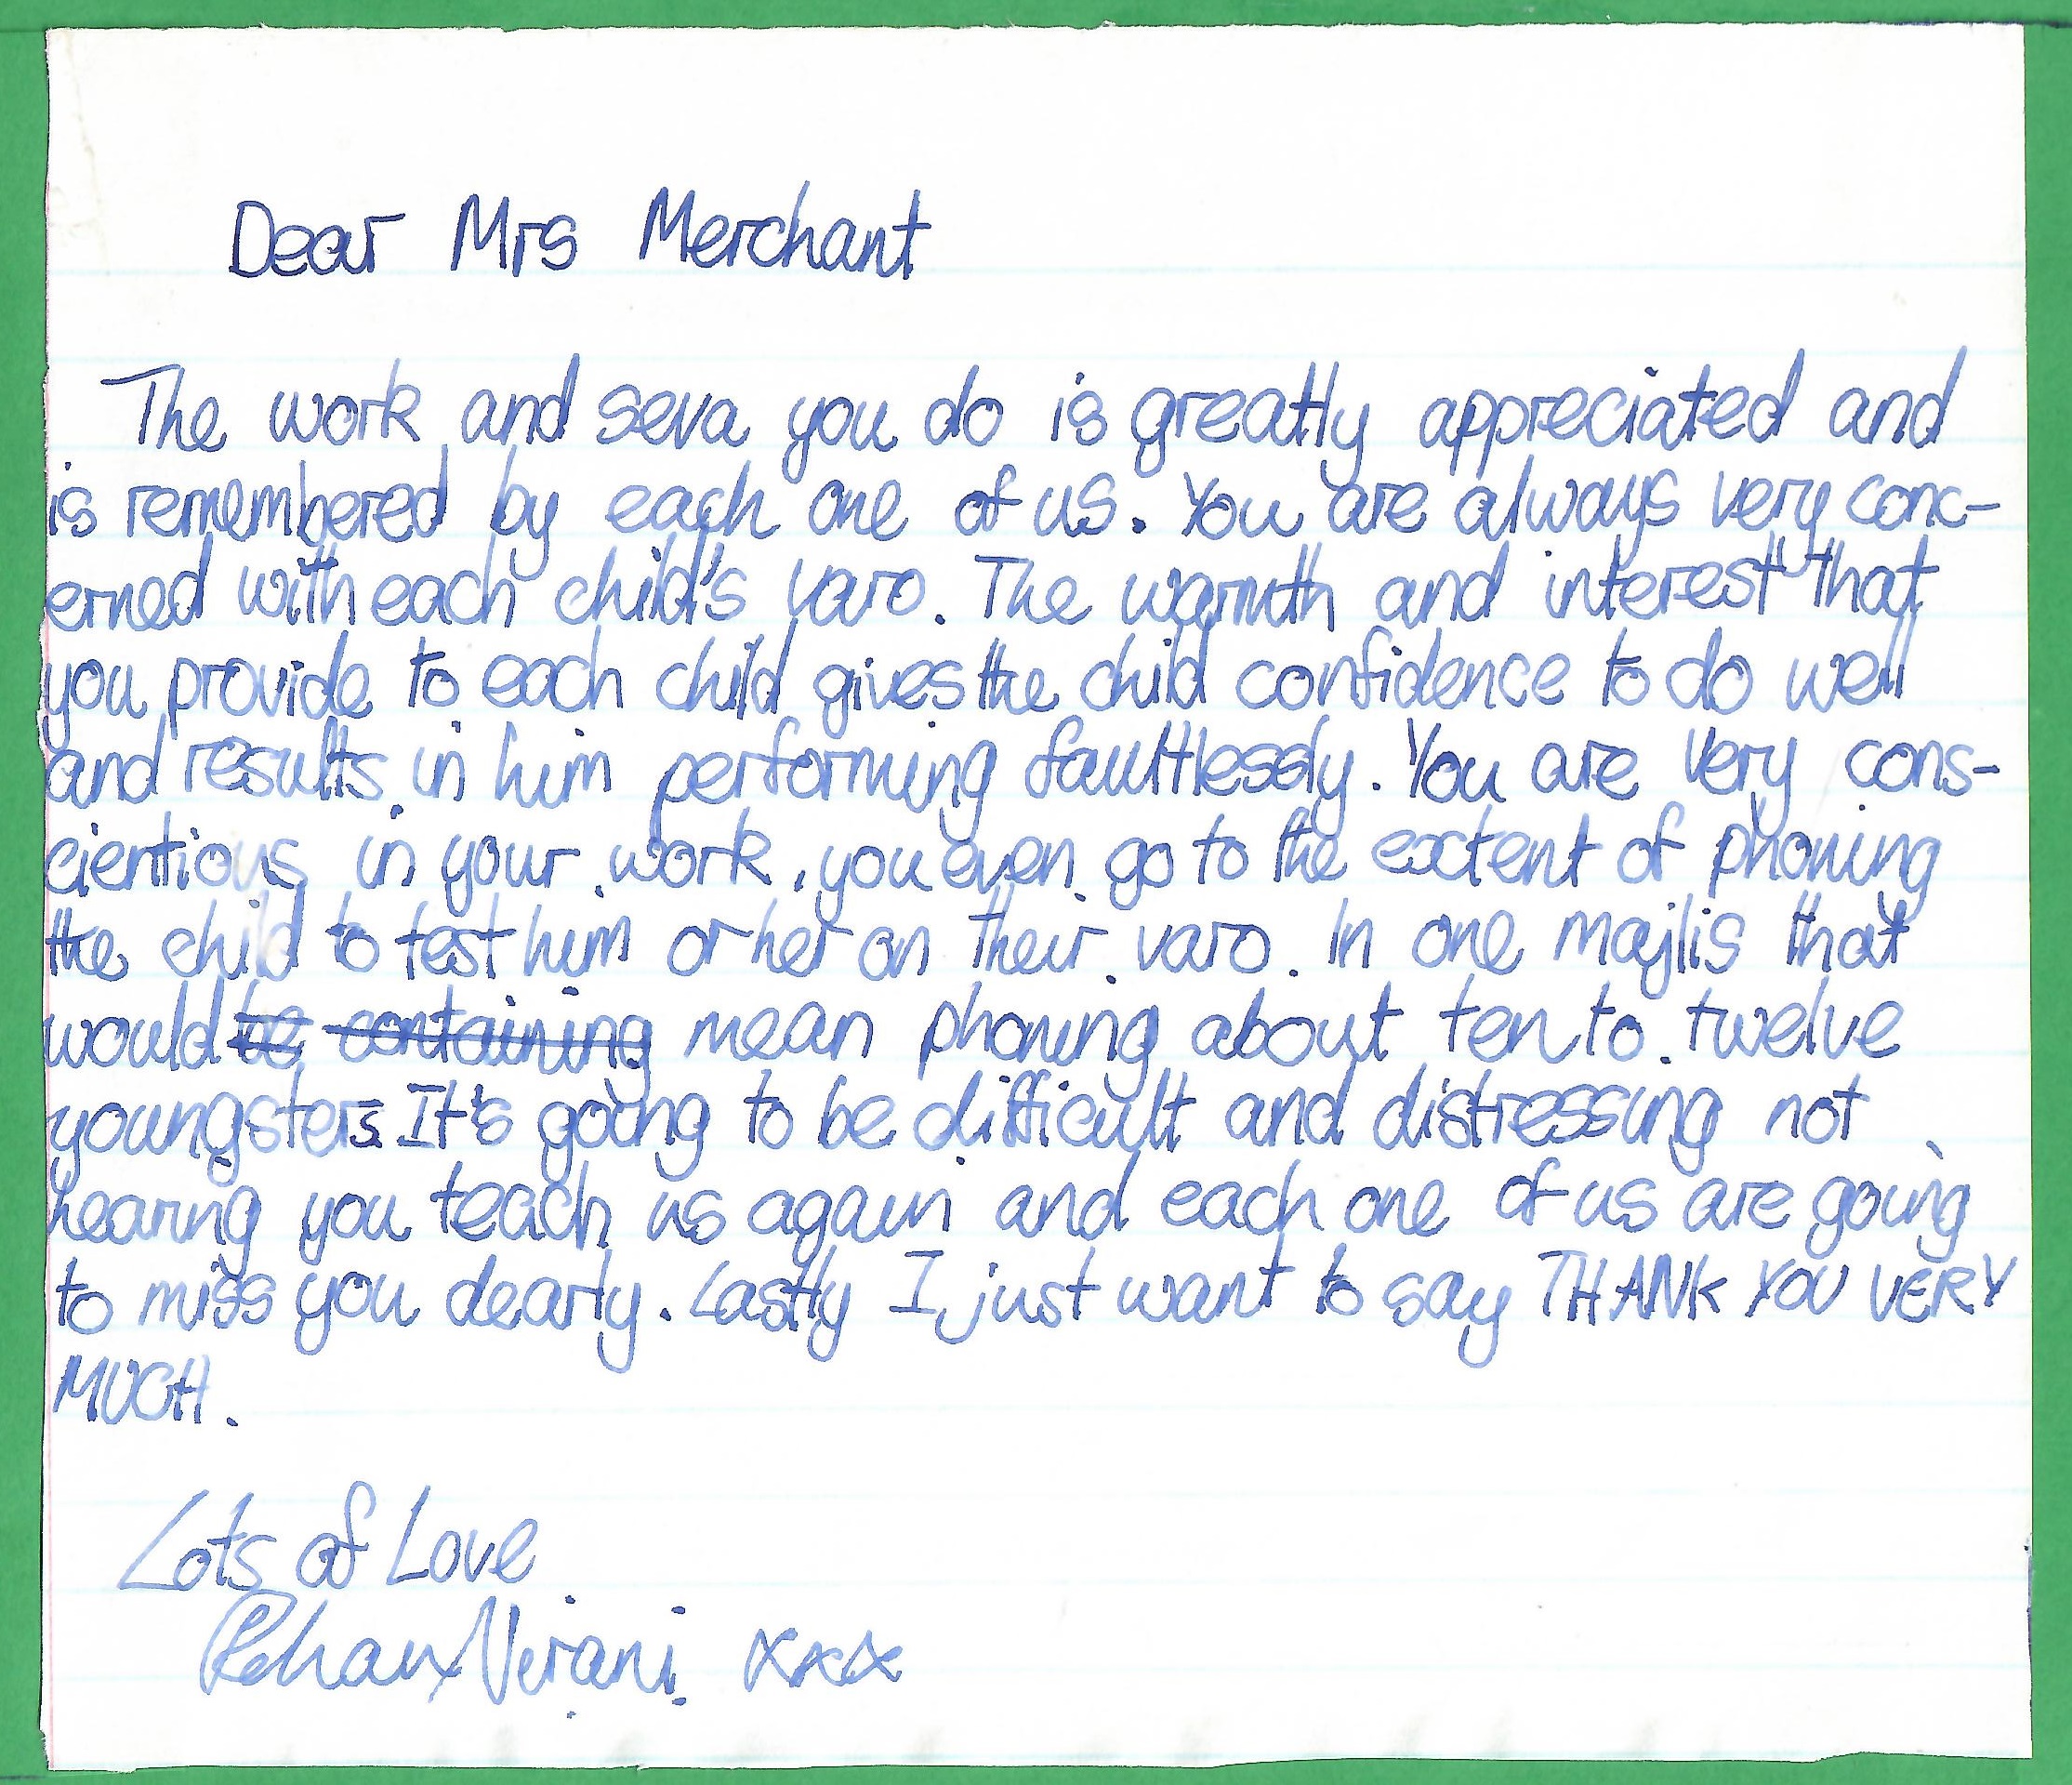 Dear Mrs Merchant
The work and seva you do is greatly appreciated and
is remembered by each one of us. You are always very conc-
erned with each child's varo. The warmth and interest that
you provide to each child gives the child confidence to do well
and results in him performing faultlessly. You are very cons-
cientious in your work, you even go to the extent of phoning
the child to test him or her on their varo. In one majlis that
would be containing mean phoning about ten to twelve
youngsters. It's going to be difficult and distressing not
hearing you teach us again and each one of us are going
to miss you dearly. Lastly I just want to say THANK YOU VERY
MUCH.
Lots of Love
Rehan Virani xxx